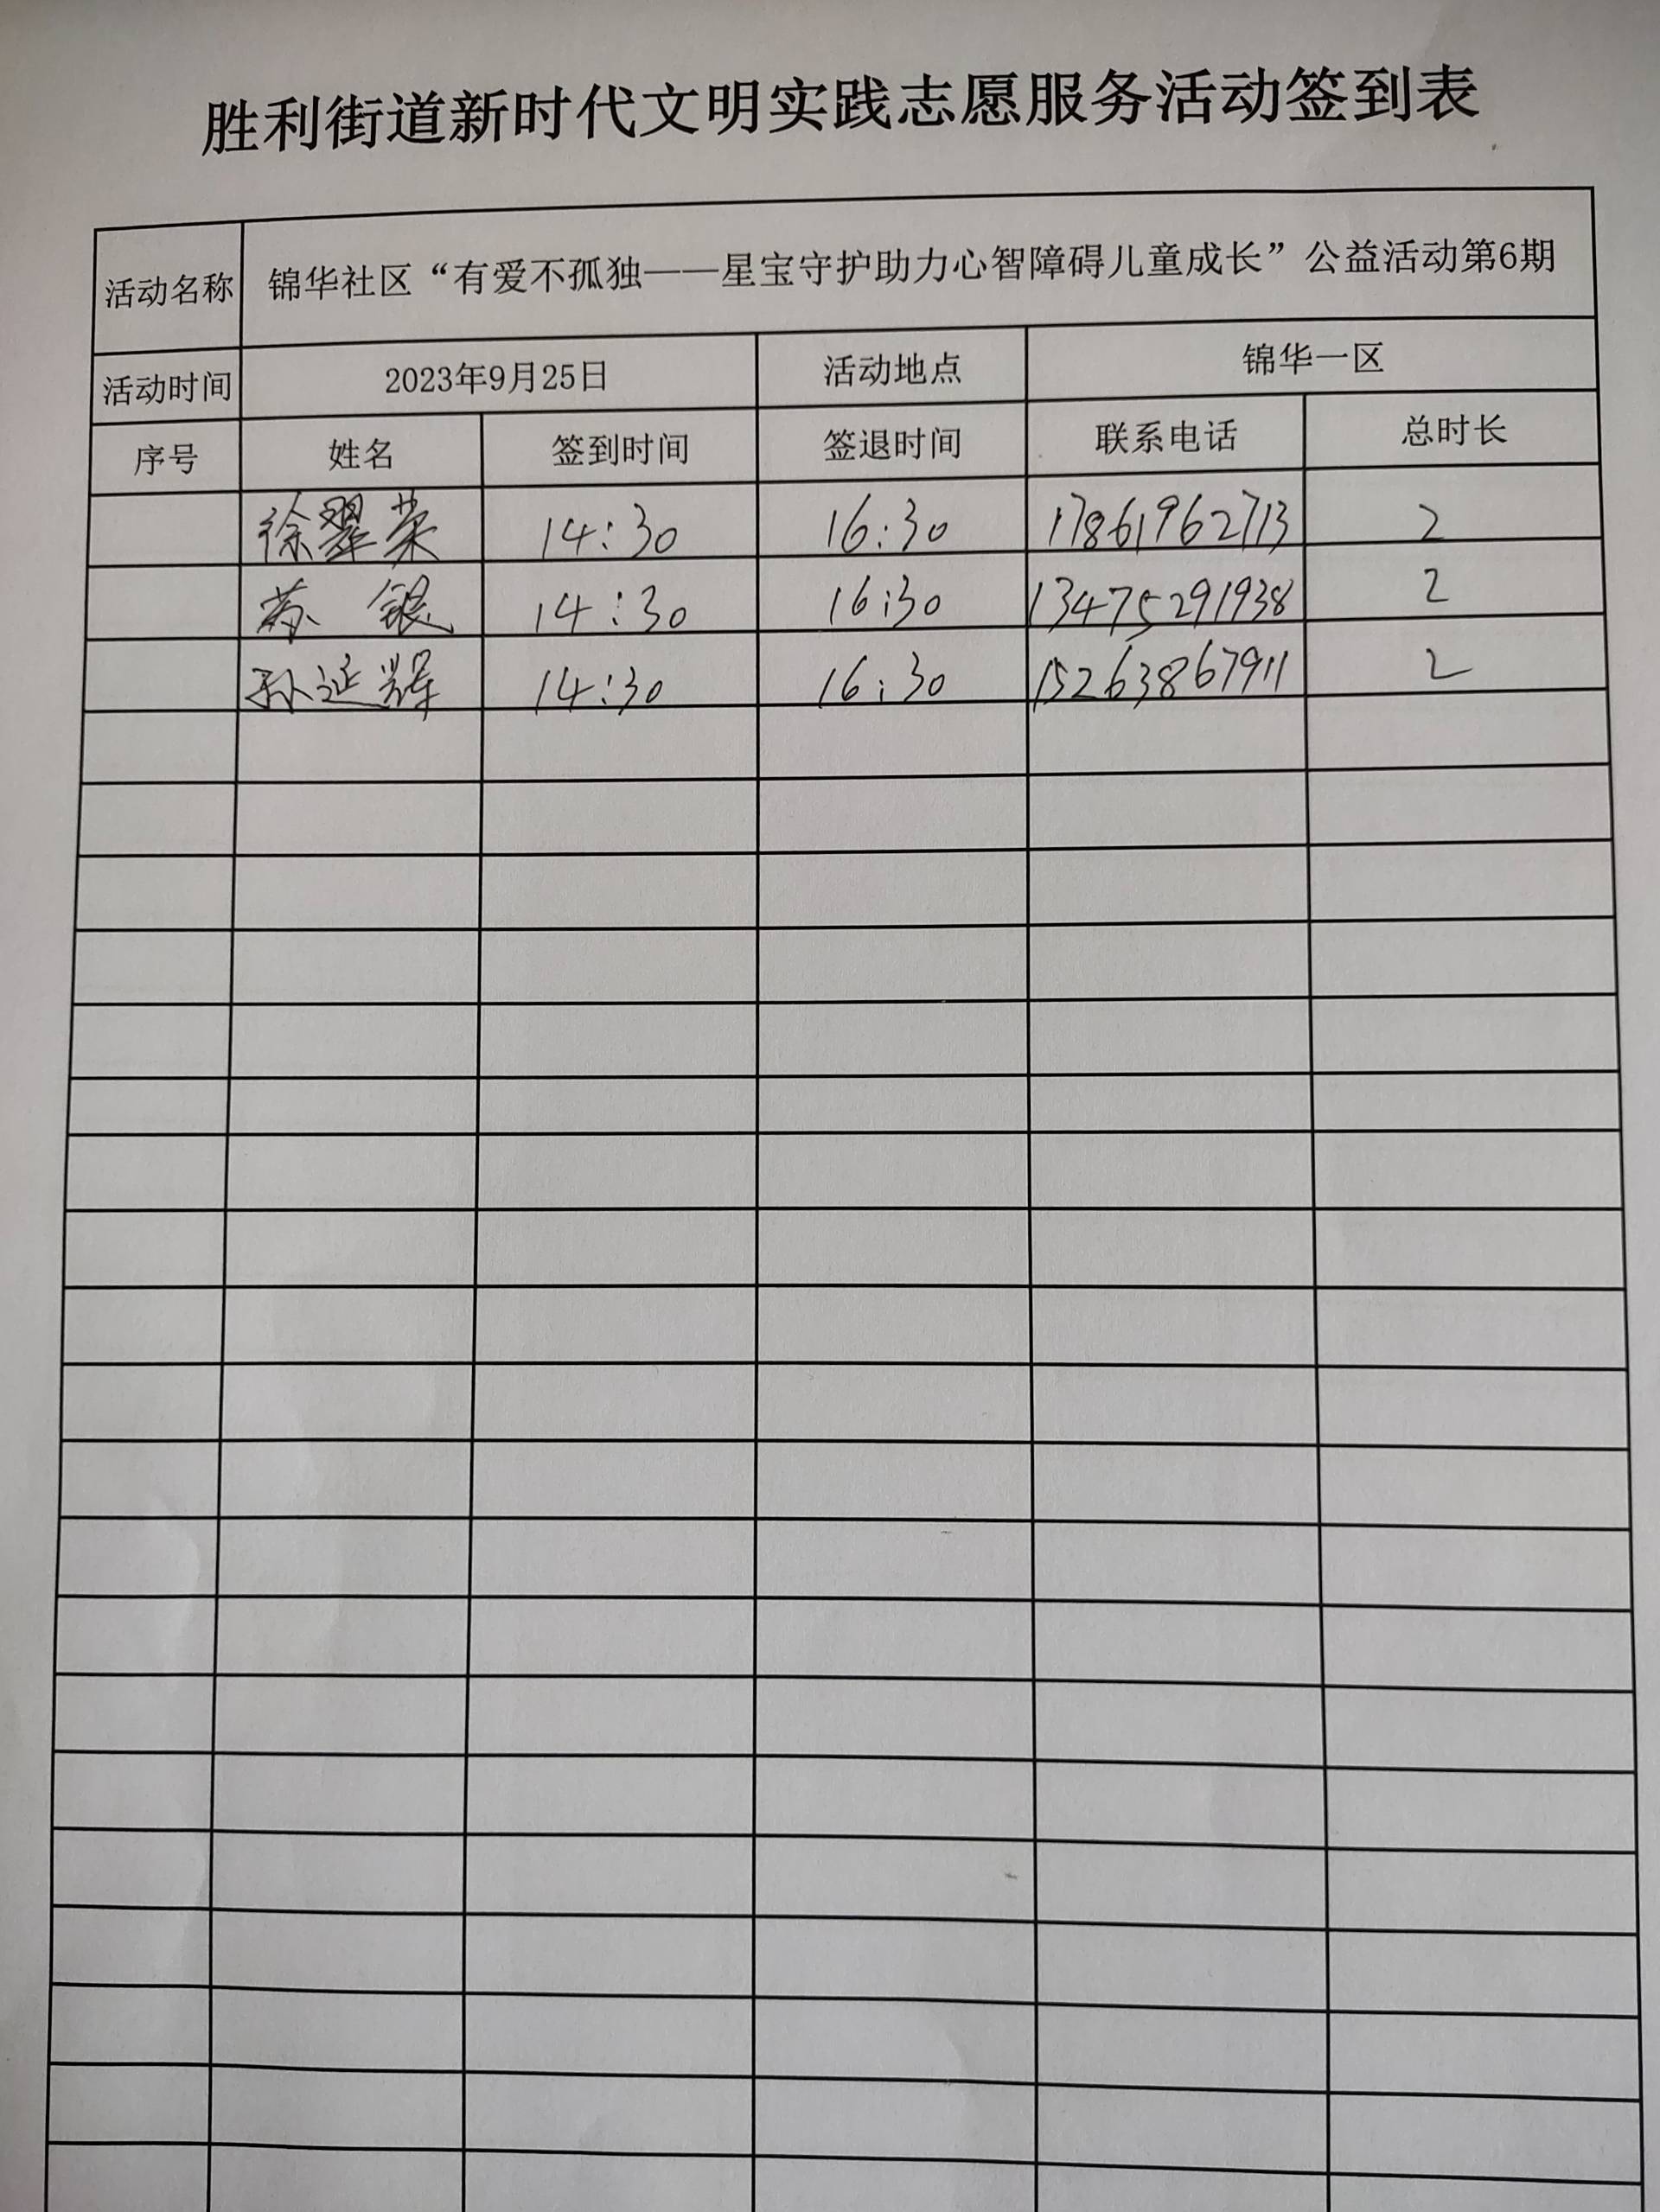 胜利街道新时代文明实践志愿服务活动签到表
活动名称 锦华社区“有爱不孤独——星宝守护助力心智障碍儿童成长”公益活动第6期
活动时间 2023年9月25日 活动地点 锦华一区
序号 姓名 签到时间 签退时间 联系电话 总时长
徐翠荣 14:30 16:30 17861962713 2
苏银 14:30 16:30 13475291938 2
孙延辉 14:30 16:30 15263867911 2